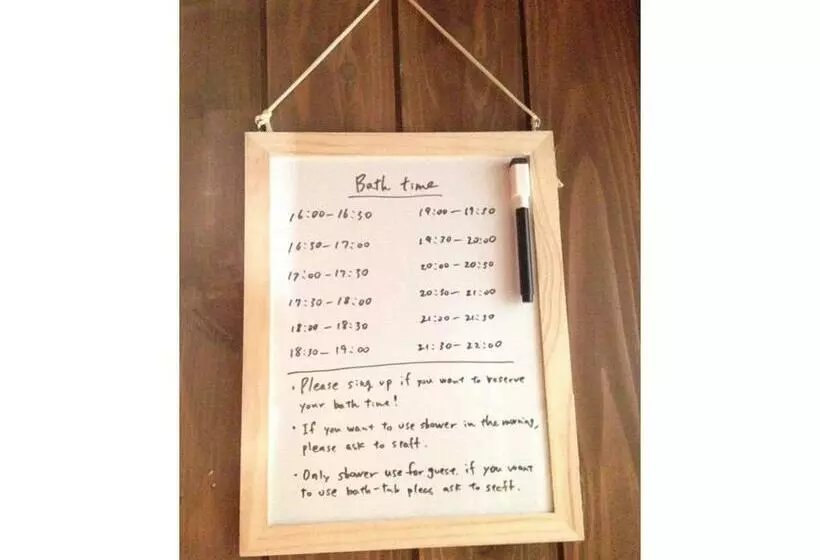 Bath time
16:00-16:30
16:30-17:00
17:00-17:30
17:30-18:00
18:00-18:30
18:30-19:00
19:00-19:30
19:30-20:00
20:00-20:30
20:30-21:00
21:00-21:30
21:30-22:00
・Please sing up if you want to reserve
your bath time!
・If you want to use shower in the morning,
please ask to staff.
・Only shower use for guest. if you want
to use bath-tub pleas ask to staff.